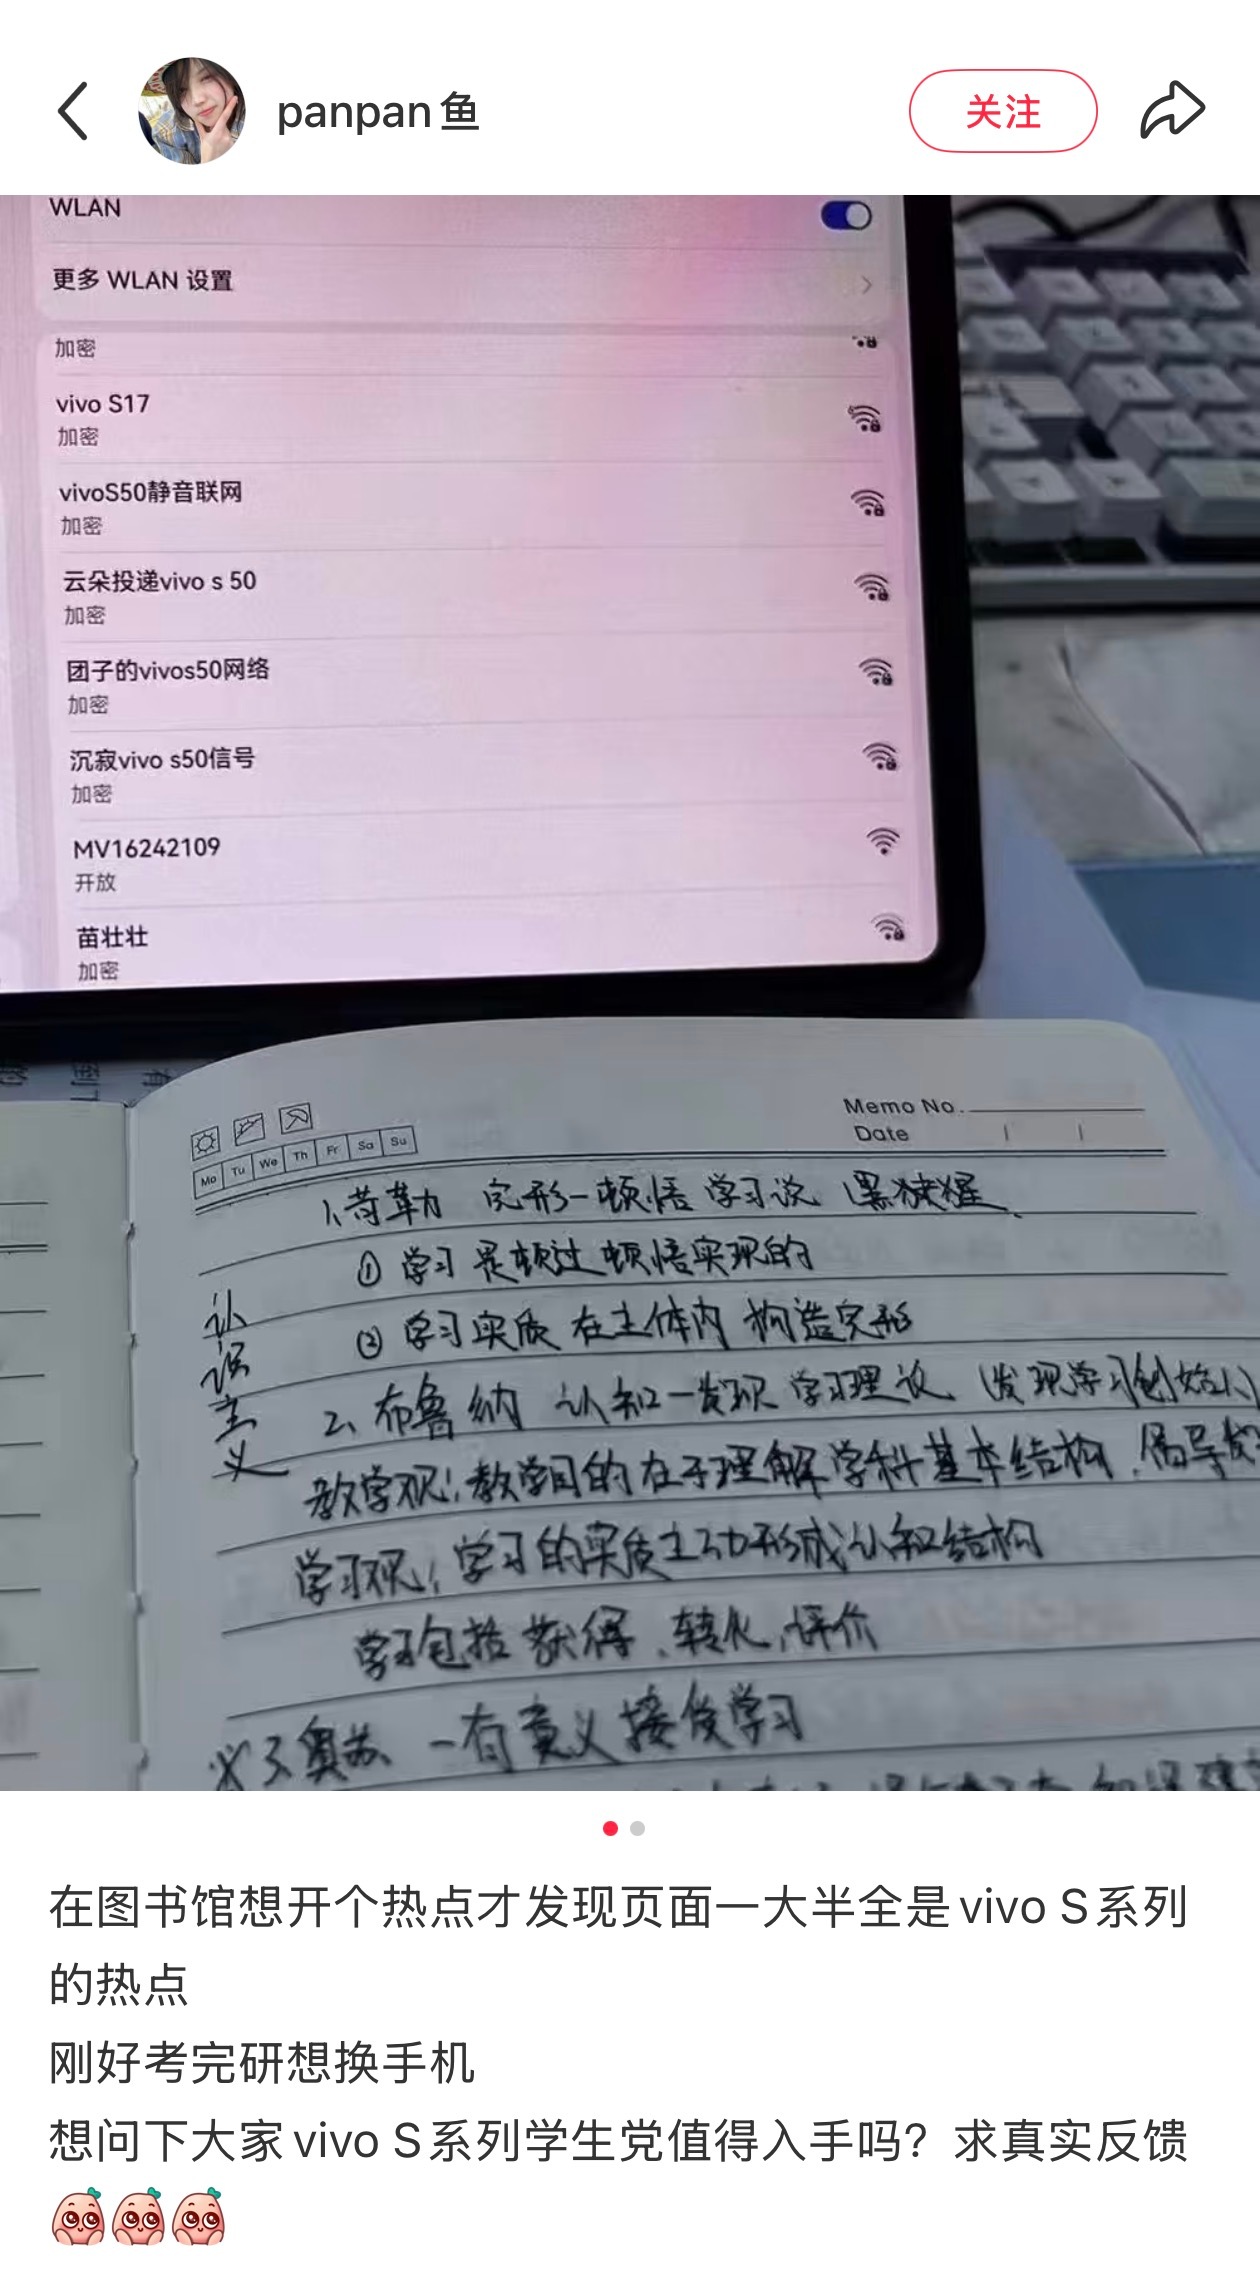 panpan鱼
关注
WLAN
更多 WLAN 设置
加密
vivo S17
加密
vivoS50静音联网
加密
云朵投递vivo s 50
加密
团子的vivos50网络
加密
沉寂vivo s50信号
加密
MV16242109
开放
苗壮壮
加密
Memo No.
Date
Mo Tu We Th Fr Sa Su
1、苛勒 完形一顿悟 学习说 黑猩猩
① 学习是 通过顿悟实现的
② 学习实质 在主体内 构造完形
认识主义
2、布鲁纳 认知一发现 学习理论 (发现学习创始人
教学观:教学目的在于理解学科基本结构,倡导发
学习观:学习的实质主动形成认知结构
学习包括 获得、转化、评价
3 奥苏 一有意义接受学习
在图书馆想开个热点才发现页面一大半全是vivo S系列
的热点
刚好考完研想换手机
想问下大家vivo S系列学生党值得入手吗？求真实反馈